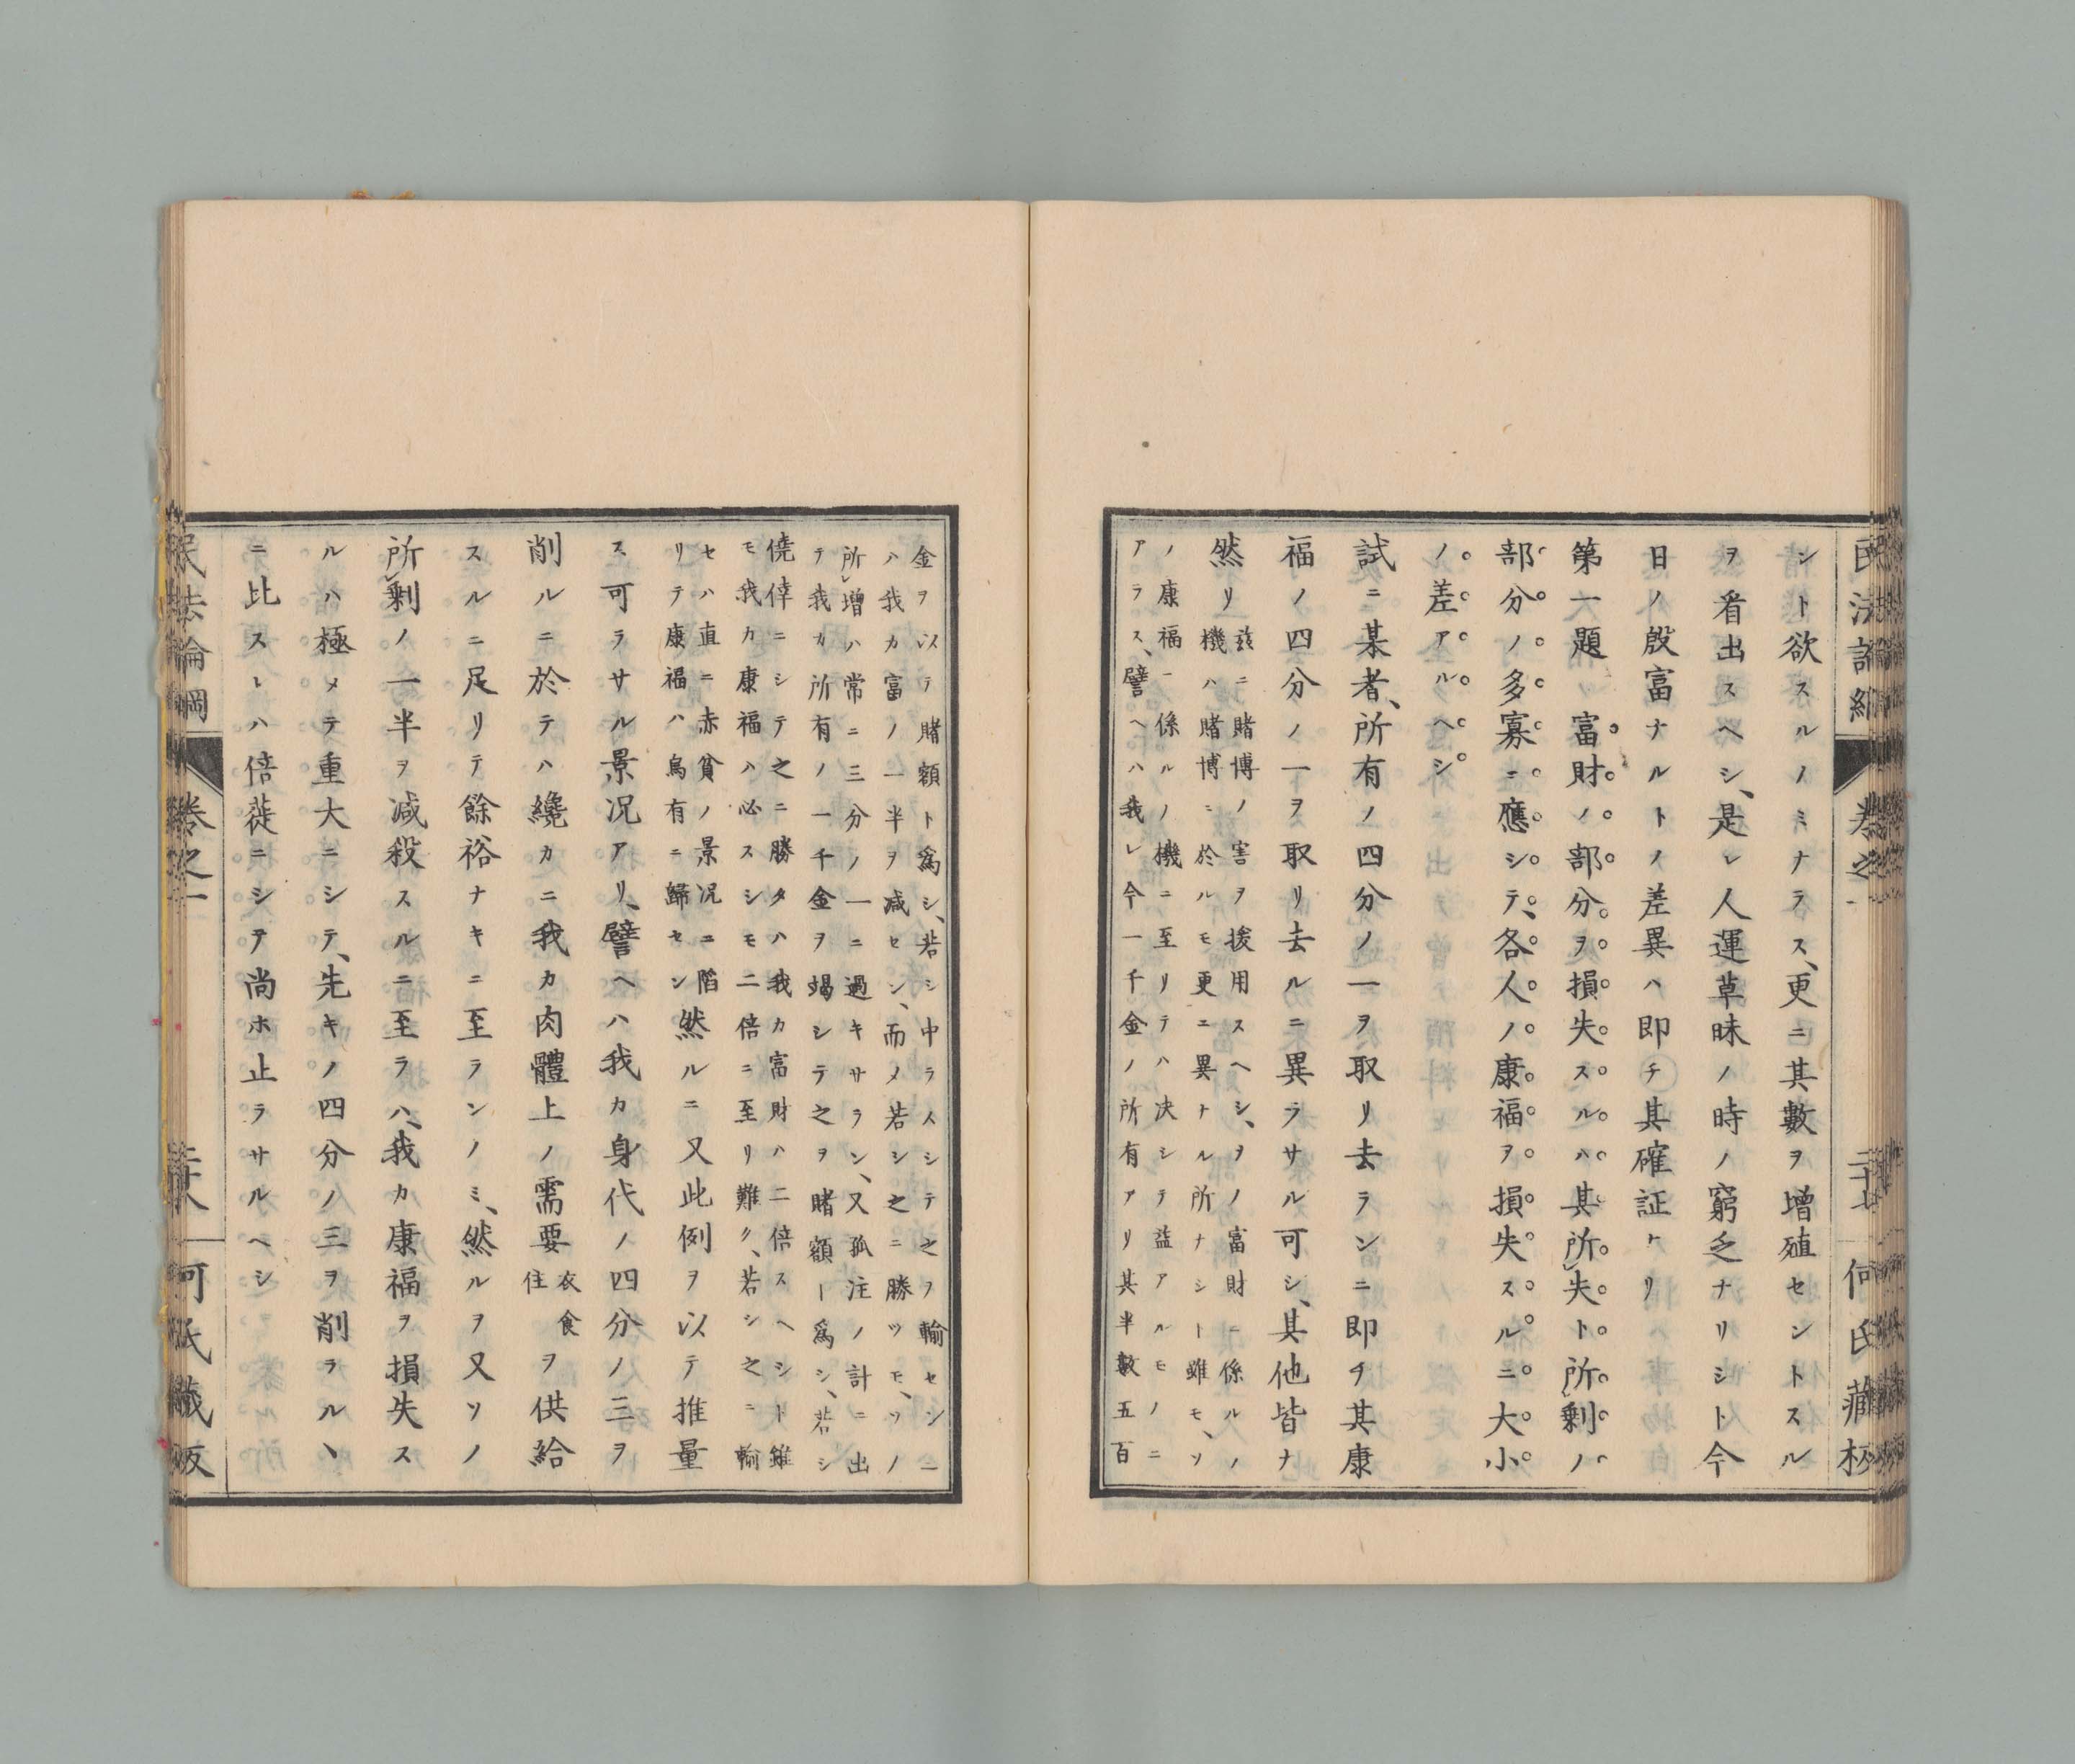 民法論綱 卷之一 二十七 何氏藏板
シト欲スルノミナラス、更ニ其數ヲ增殖セントスル
ヲ看出スヘシ、是レ人運草昧ノ時ノ窮乏ナリシト今
日ノ殷富ナルトノ差異ハ即チ其確証ナリ
第一題 富財ノ部分ヲ損失スルハ其所失ト所剩ノ
部分ノ多寡ニ應シテ、各人ノ康福ヲ損失スルニ大小
ノ差アルヘシ
試ニ某者、所有ノ四分ノ一ヲ取リ去ランニ即チ其康
福ノ四分ノ一ヲ取リ去ルニ異ラサル可シ、其他皆ナ
然リ
茲ニ賭博ノ害ヲ援用スヘシ、ヲノ富財ニ係ルノ
機ハ賭博ニ於ルモ更ニ異ナル所ナシト雖モ、ソ
ノ康福ニ係ルノ機ニ至リテハ决シテ益アルモノニ
アラス、譬ヘハ我レ今一千金ノ所有アリ其半數五百
金ヲ以テ賭額ト爲シ、若シ中ラスシテ之ヲ輸センニ
ハ我カ富ノ一半ヲ减セン、而メ若シ之ニ勝ツモ、ソノ
所增ハ常ニ三分ノ一ニ過キサラン、又孤注ノ計ニ出
テ我カ所有ノ一千金ヲ竭シテ之ヲ賭額ト爲シ、若シ
僥倖ニシテ之ニ勝タハ我カ富財ハ二倍スヘシト雖
モ我カ康福ハ必スシモ二倍ニ至リ難ク、若シ之ニ輸
セハ直ニ赤貧ノ景况ニ陷
リテ康福ハ烏有ニ歸セン
然ルニ又此例ヲ以テ推量
ス可ラサル景况アリ、譬ヘハ我カ身代ノ四分ノ三ヲ
削ルニ於テハ纔カニ我カ肉體上ノ需要衣食住ヲ供給
スルニ足リテ餘裕ナキニ至ランノミ、然ルヲ又ソノ
所剩ノ一半ヲ减殺スルニ至ラハ、我カ康福ヲ損失ス
ルハ極メテ重大ニシテ、先キノ四分ノ三ヲ削ラルヽ
ニ比スレハ倍蓰ニシテ尚ホ止ラサルヘシ
民法論綱 卷之一 廿八 何氏藏板